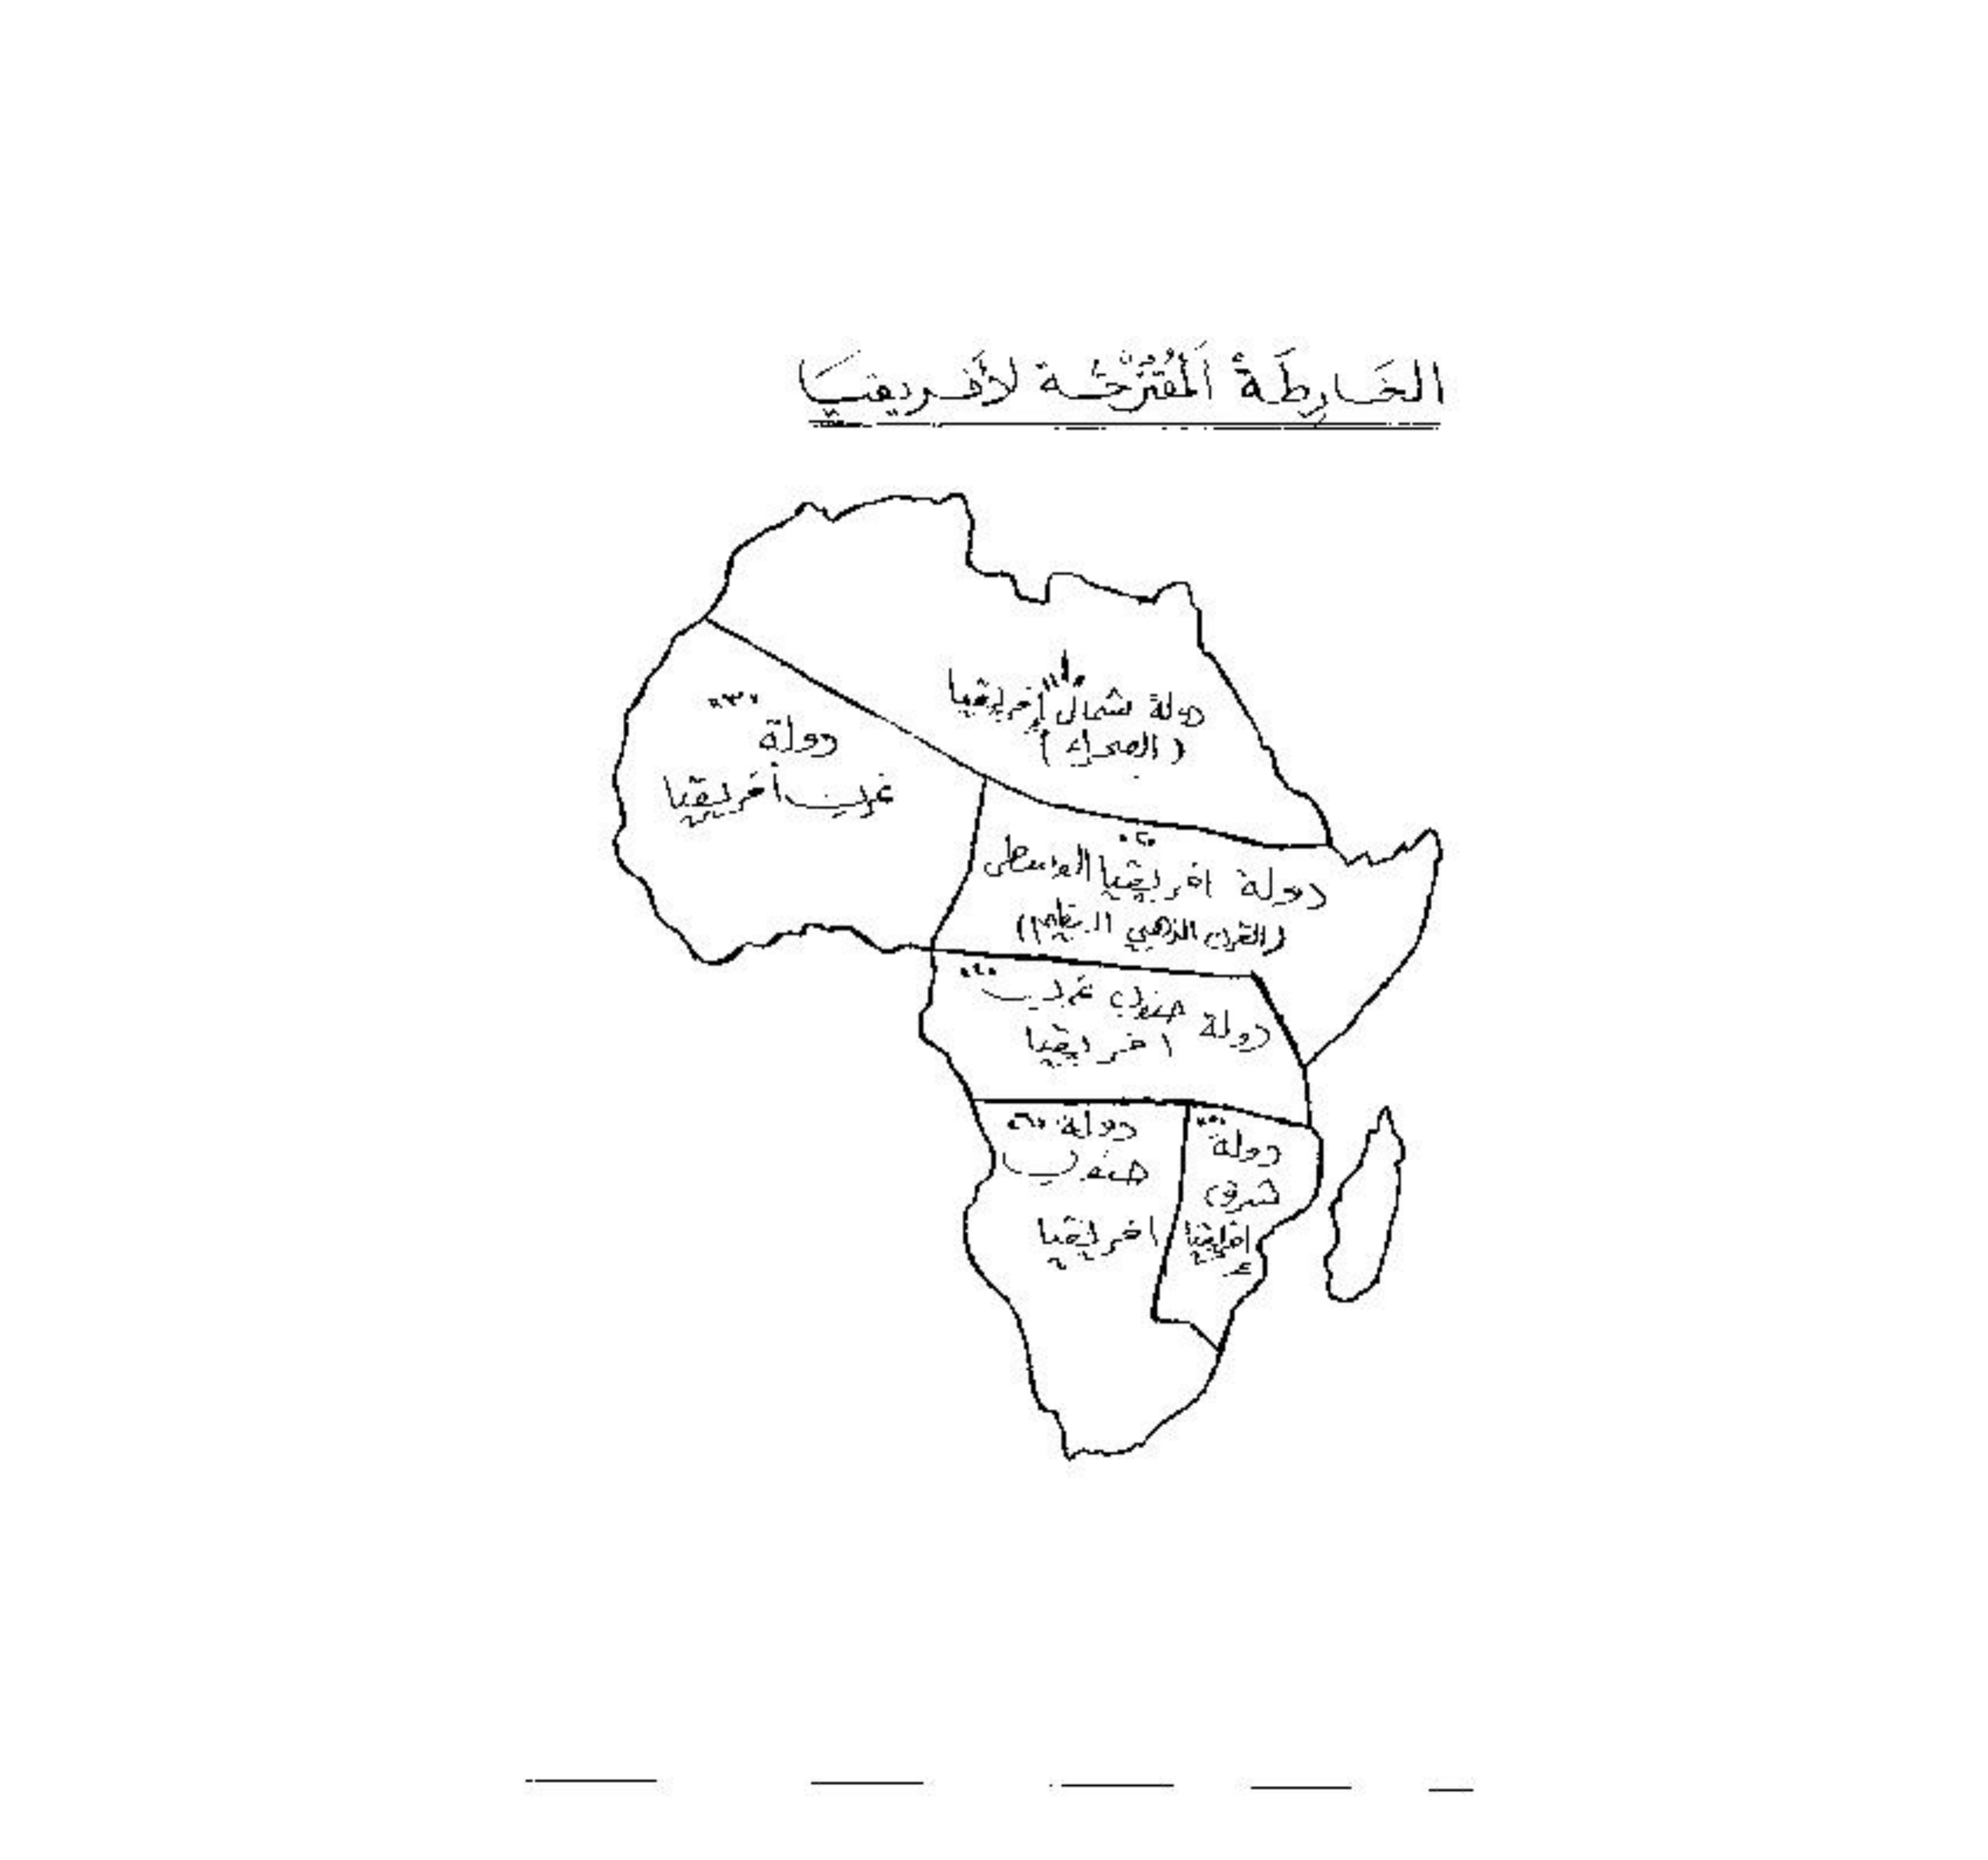 الخَارِطَةُ اَلمُقْتَرَحَة لأَفريقيَا
"١"
دولة شمال إفريقيا
(الصحراء)
"٣"
دولة
غرب أفريقيا
"٢"
دولة افريقيا الوسطى
(القرن الذهبي العظيم)
"٤"
دولة جنوب غرب
افريقيا
دولة "٦"
جنوب
افريقيا
"٥"
دولة
شرق
إفريقيا